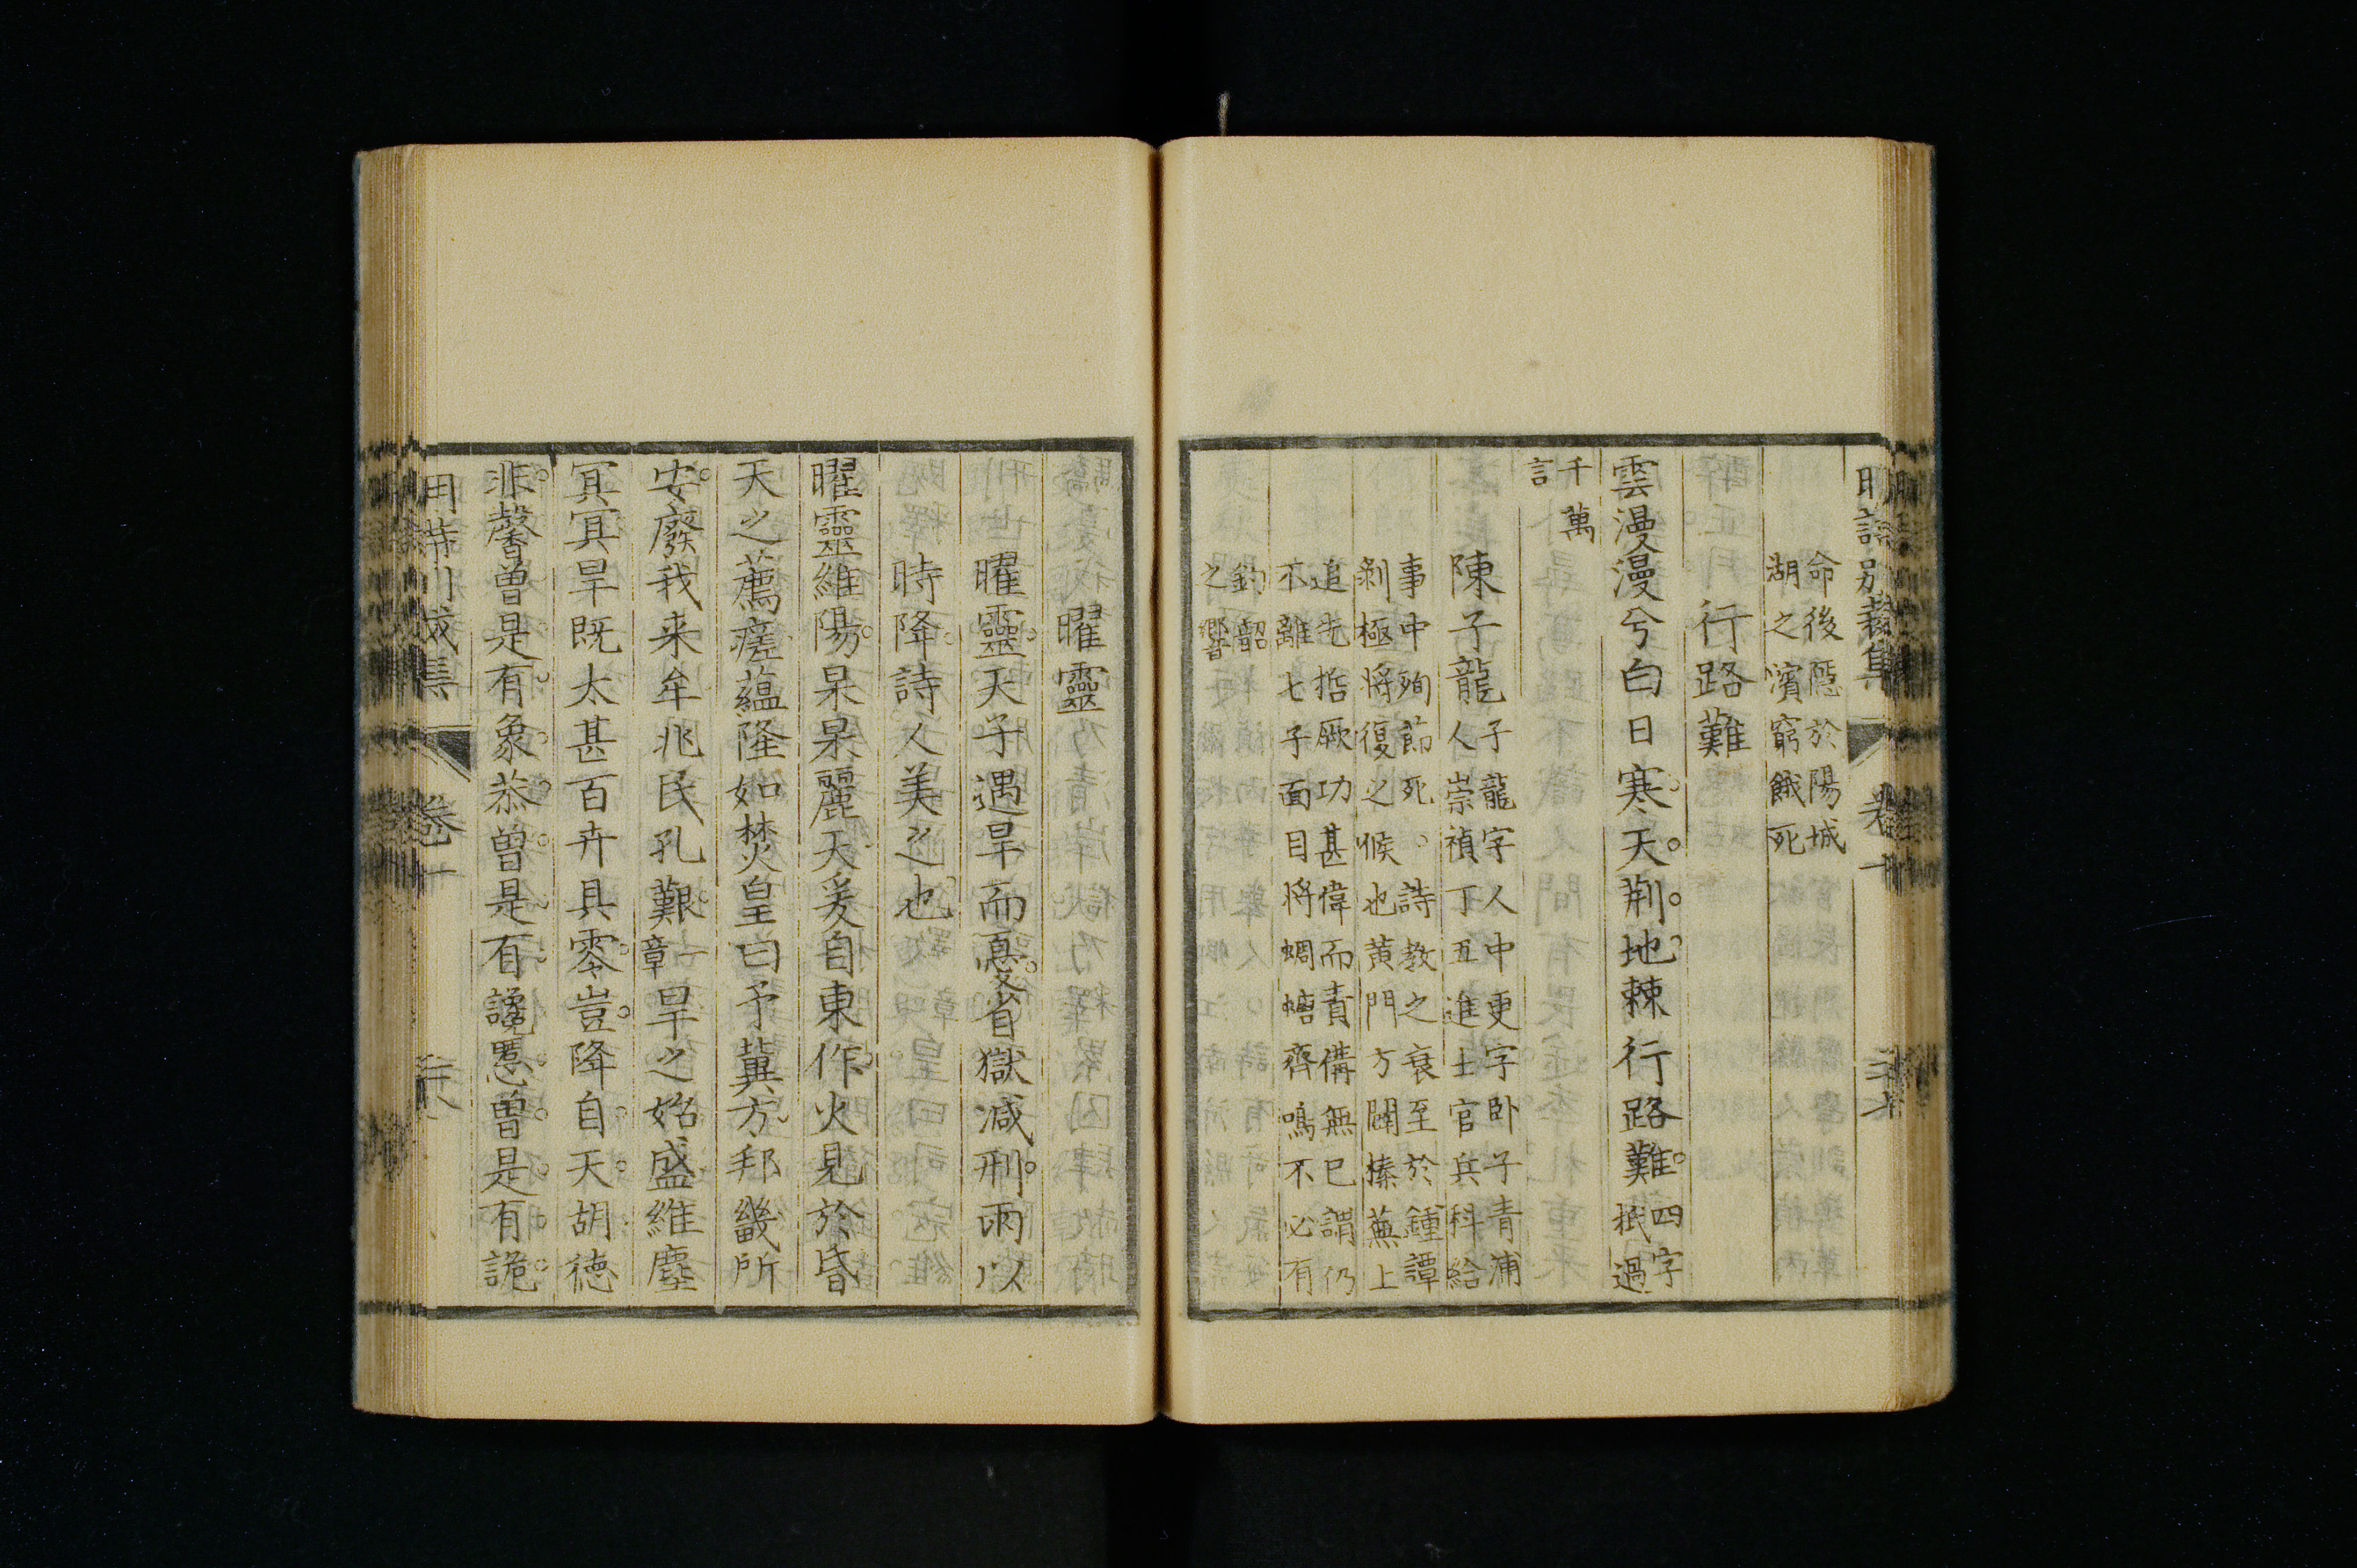 明詩別裁集 卷十 二十七
命後隱於陽城
湖之濱窮餓死
行路難
雲漫漫兮白日寒天荆地棘行路難四字
抵過
千萬
言
陳子龍子龍字人中更字卧子青浦
人崇禎丁丑進士官兵科給
事中殉節死○詩教之衰至於鍾譚
剝極將復之候也黄門力闢榛蕪上
追先哲厥功甚偉而責備無已謂仍
不離七子面目將蜩螗齊鳴不必有
鈞韶
之響
曜靈
曜靈天子遇旱而憂省獄減刑雨以
時降詩人美之也
曜靈維陽杲杲麗天爰自東作火見於昏
天之薦瘥蘊隆如焚皇曰予冀方邦畿所
安廢我来牟兆民孔艱一章旱之始盛維塵
冥冥旱既太甚百卉具零豈降自天胡德
非馨曾是有象恭曾是有讒慝曾是有詭
卷十